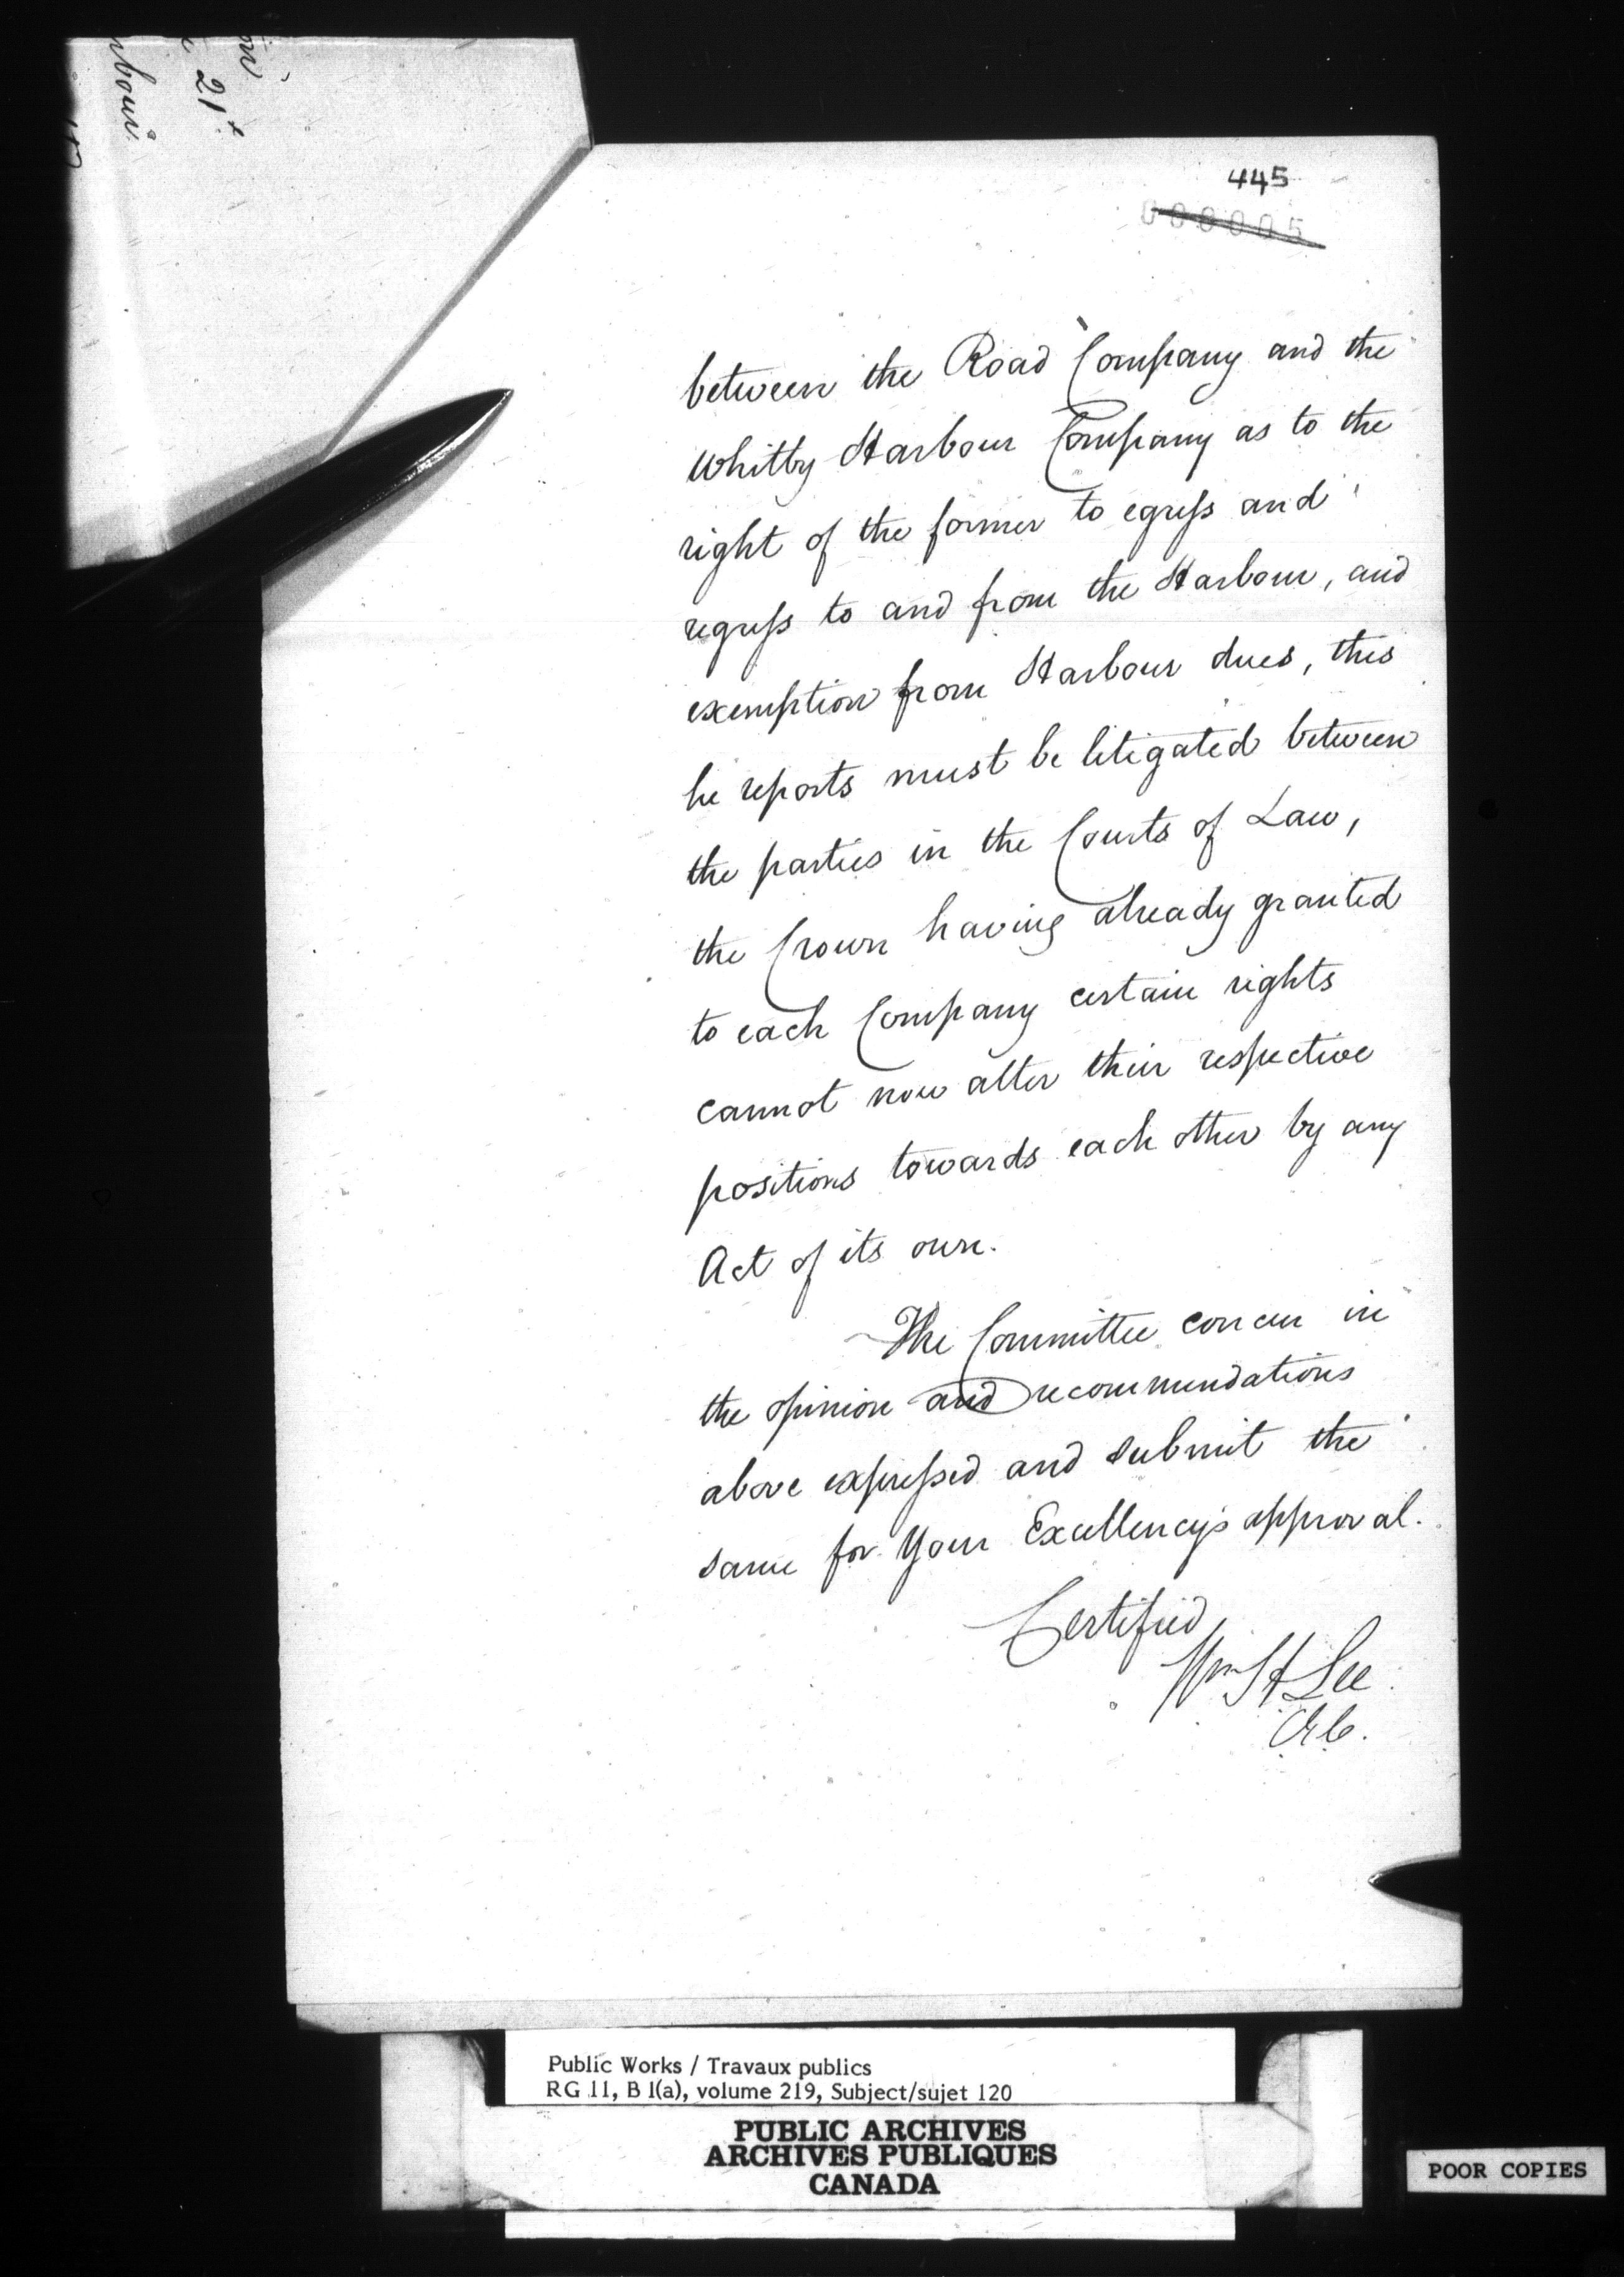 21st
445
000005
between the Road Company and the
Whitby Harbour Company as to the
right of the former to egress and
regress to and from the Harbour, and
exemption from Harbour dues, this
he reports must be litigated between
the parties in the Courts of Law,
the Crown having already granted
to each Company certain rights
cannot now alter their respective
positions towards each other by any
Act of its own.
The Committee concur in
the opinion and recommendations
above expressed and submit the
same for Your Excellency's approval.
Certified
Wm H Lee
C.E.C.
Public Works / Travaux publics
RG 11, B 1(a), volume 219, Subject/sujet 120
PUBLIC ARCHIVES
ARCHIVES PUBLIQUES
CANADA
POOR COPIES